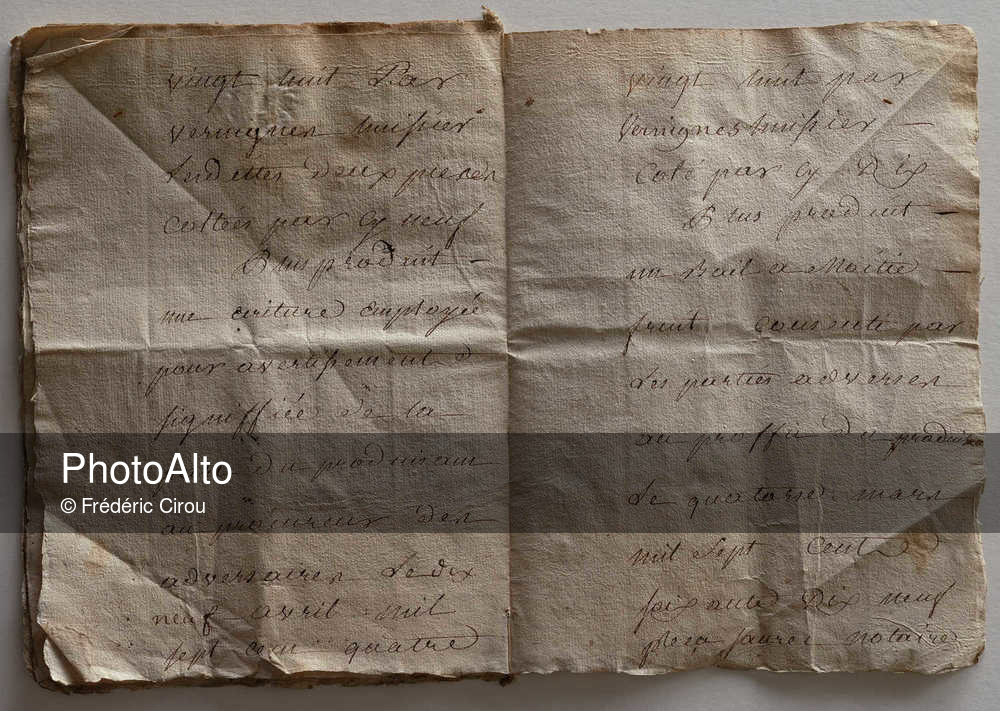 vingt huit Par
vermignen huissier
deux pieces
cottées par cy neuf
Plus produit -
une ecriture employée
pour avertissement &
signiffiée de la
du produisant
au procureur des
adversaires Le dix
neuf avril mil
sept cent quatre
vingt huit par
vermignes huissier -
Coté par cy Dix
Plus produit -
un Bail a Moitié -
fruit consenti par
Les parties adverses
au proffit du produisant
Le quatorze mars
mil sept cent
soixante Dix neuf
notaire
PhotoAlto
© Frédéric Cirou